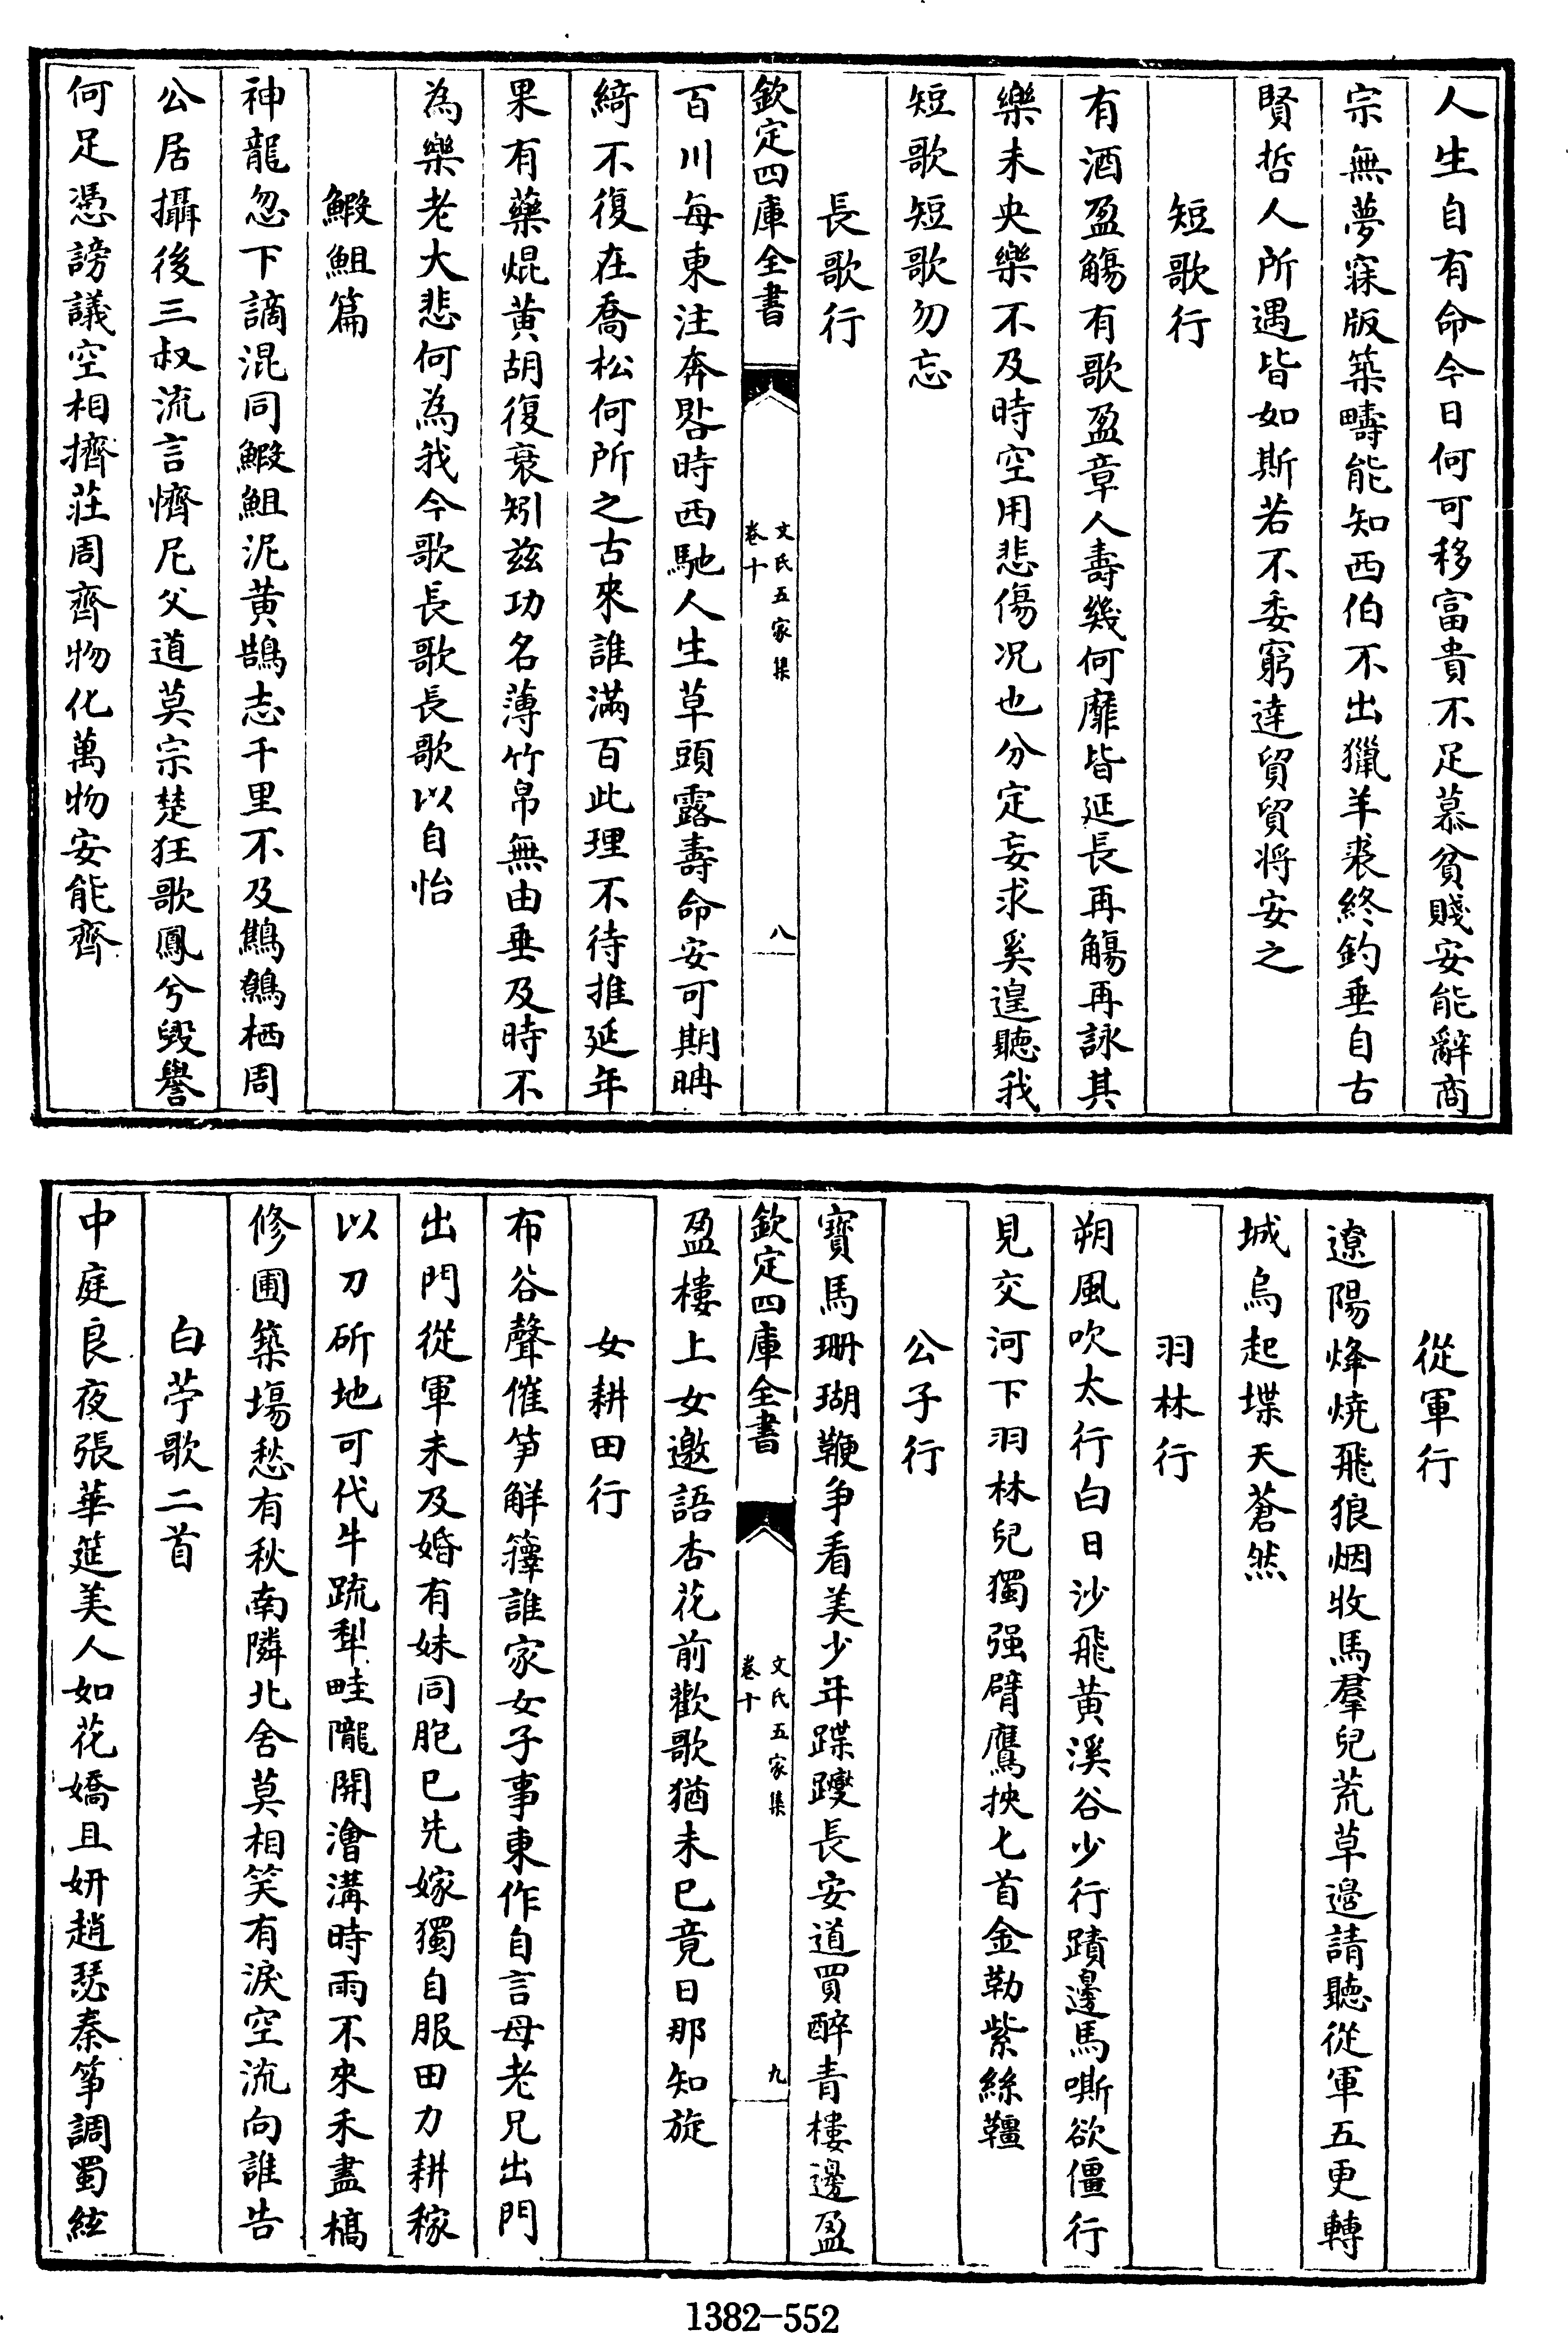 人生自有命今日何可移富貴不足慕貧賤安能辭商
宗無夢寐版築疇能知西伯不出獵羊裘終釣垂自古
賢哲人所遇皆如斯若不委窮達貿貿將安之
短歌行
有酒盈觴有歌盈章人壽幾何靡皆延長再觴再詠其
樂未央樂不及時空用悲傷况也分定妄求奚遑聽我
短歌短歌勿忘
長歌行
欽定四庫全書
文氏五家集
卷十
八
百川每東注奔晷時西馳人生草頭露壽命安可期
綺不復在喬松何所之古來誰滿百此理不待推延年
果有藥焜黄胡復衰矧兹功名薄竹帛無由垂及時不
為樂老大悲何為我今歌長歌長歌以自怡
鰕䱉篇
神龍忽下謫混同鰕䱉泥黄鵠志千里不及鷦鷯栖周
公居攝後三叔流言懠尼父道莫宗楚狂歌鳳兮毁譽
何足憑謗議空相擠莊周齊物化萬物安能齊
從軍行
遼陽烽燒飛狼烟收馬羣兒荒草邊請聽從軍五更轉
城烏起堞天蒼然
羽林行
朔風吹太行白日沙飛黄溪谷少行蹟邊馬嘶欲僵行
見交河下羽林兒獨强臂鷹挾七首金勒紫絲韁
公子行
寶馬珊瑚鞭争看美少年蹀躞長安道買醉青樓邊盈
欽定四庫全書
文氏五家集
卷十
九
盈樓上女邀語杏花前歡歌猶未已竟日那知旋
女耕田行
布谷聲催笋解籜誰家女子事東作自言母老兄出門
出門從軍未及婚有妹同胞已先嫁獨自服田力耕稼
以刀斫地可代牛疏犁畦隴開澮溝時雨不來禾盡槁
修圃築塲愁有秋南隣北舍莫相笑有淚空流向誰告
白苧歌二首
中庭良夜張華筵美人如花嬌且妍趙瑟秦筝調蜀絃
1382-552